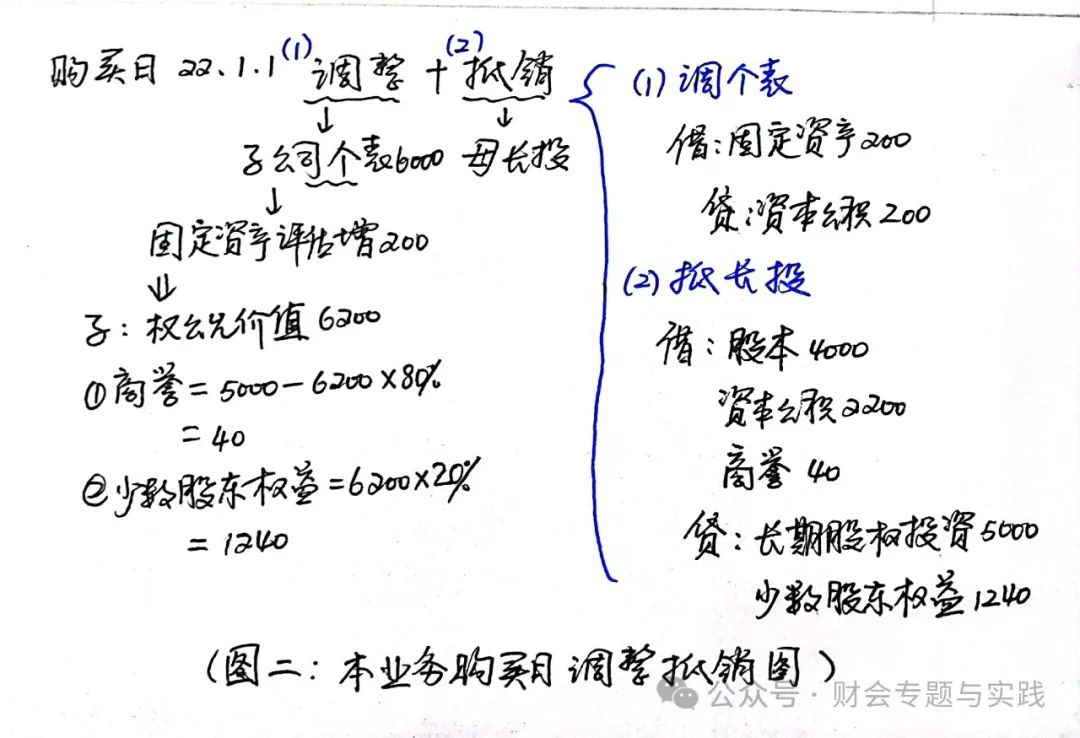 购买日 22.1.1 (1)调整 + (2)抵销
子公司个表6000 母长投
固定资产评估增200
子：权公允价值 6200
①商誉 = 5000 - 6200×80%
= 40
②少数股东权益 = 6200×20%
= 1240
(1) 调个表
借：固定资产200
贷：资本公积 200
(2) 抵长投
借：股本 4000
资本公积2200
商誉 40
贷：长期股权投资5000
少数股东权益1240
(图二：本业务购买日调整抵销图)
公众号·财会专题与实践